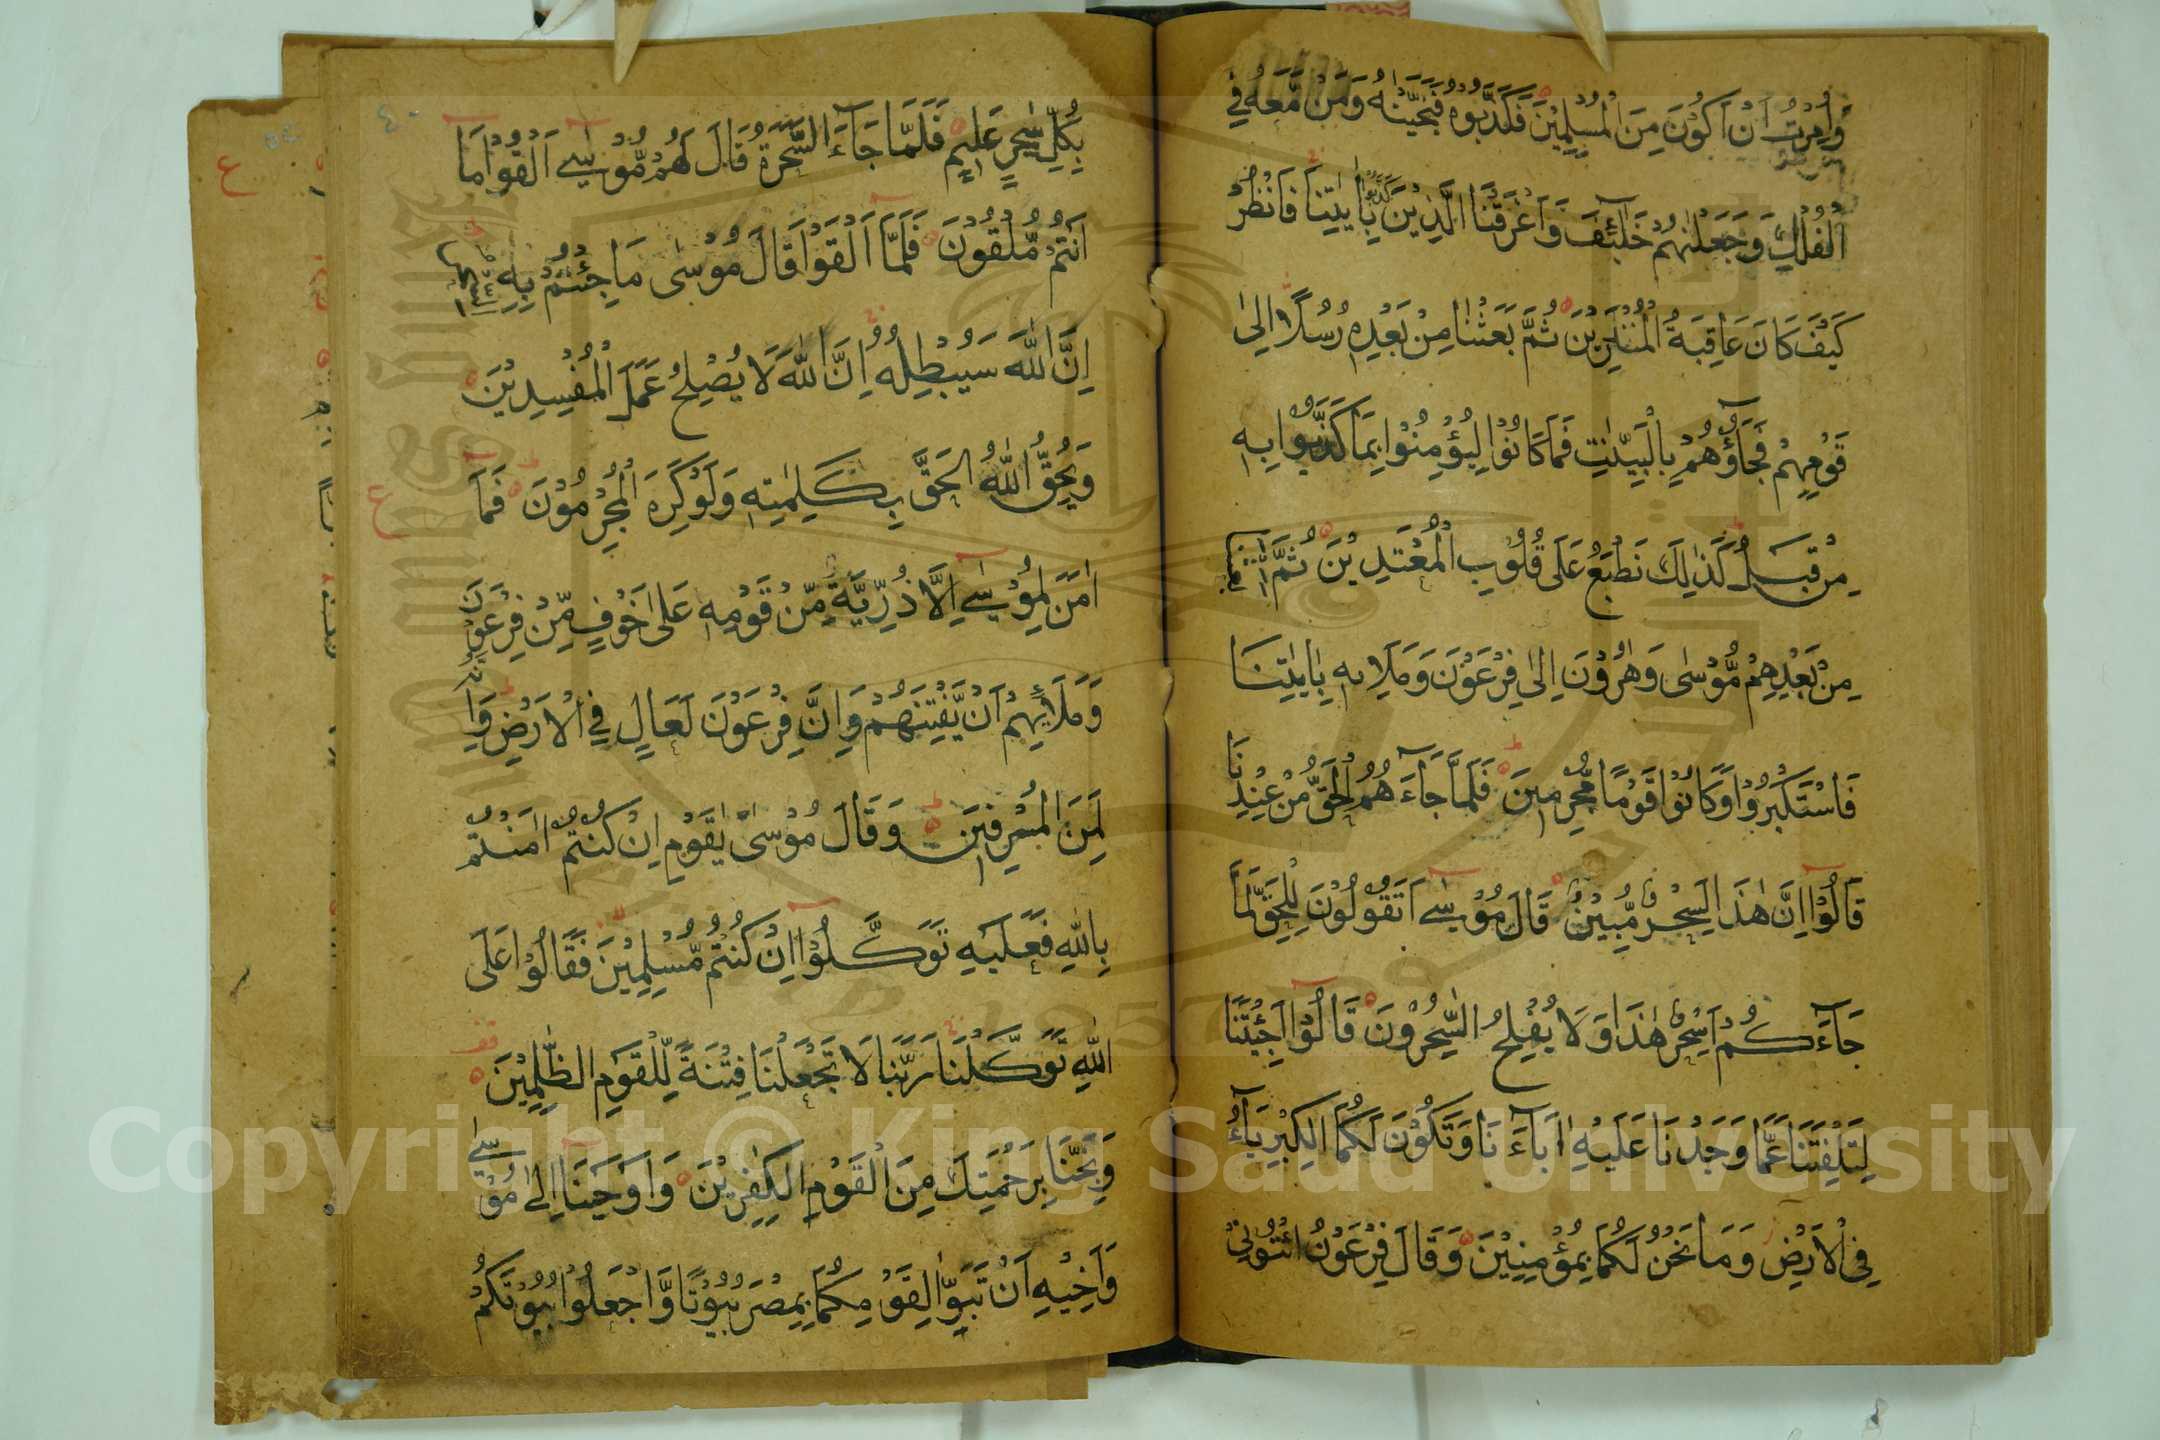 وَاُمِرْتُ اَنْ اَكُوْنَ مِنَ الْمُسْلِمِيْنَ فَكَذَّبُوْهُ فَنَجَّيْنٰهُ وَمَنْ مَّعَهٗ فِي
الْفُلْكِ وَجَعَلْنٰهُمْ خَلٰٓئِفَ وَاَغْرَقْنَا الَّذِيْنَ كَذَّبُوْا بِاٰيٰتِنَا فَانْظُرْ
كَيْفَ كَانَ عَاقِبَةُ الْمُنْذَرِيْنَ ثُمَّ بَعَثْنَا مِنْ بَعْدِهٖ رُسُلًا اِلٰى
قَوْمِهِمْ فَجَآءُوْهُمْ بِالْبَيِّنٰتِ فَمَا كَانُوْا لِيُؤْمِنُوْا بِمَا كَذَّبُوْا بِهٖ
مِنْ قَبْلُ كَذٰلِكَ نَطْبَعُ عَلٰى قُلُوْبِ الْمُعْتَدِيْنَ ثُمَّ بَعَثْنَا
مِنْ بَعْدِهِمْ مُّوْسٰى وَهٰرُوْنَ اِلٰى فِرْعَوْنَ وَمَلَا۟ئِهٖ بِاٰيٰتِنَا
فَاسْتَكْبَرُوْا وَكَانُوْا قَوْمًا مُّجْرِمِيْنَ فَلَمَّا جَآءَهُمُ الْحَقُّ مِنْ عِنْدِنَا
قَالُوْٓا اِنَّ هٰذَا لَسِحْرٌ مُّبِيْنٌ قَالَ مُوْسٰٓى اَتَقُوْلُوْنَ لِلْحَقِّ لَمَّا
جَآءَكُمْ اَسِحْرٌ هٰذَا وَلَا يُفْلِحُ السّٰحِرُوْنَ قَالُوْٓا اَجِئْتَنَا
لِتَلْفِتَنَا عَمَّا وَجَدْنَا عَلَيْهِ اٰبَآءَنَا وَتَكُوْنَ لَكُمَا الْكِبْرِيَآءُ
فِى الْاَرْضِ وَمَا نَحْنُ لَكُمَا بِمُؤْمِنِيْنَ وَقَالَ فِرْعَوْنُ ائْتُوْنِيْ
بِكُلِّ سٰحِرٍ عَلِيْمٍ فَلَمَّا جَآءَ السَّحَرَةُ قَالَ لَهُمْ مُّوْسٰٓى اَلْقُوْا مَآ
اَنْتُمْ مُّلْقُوْنَ فَلَمَّآ اَلْقَوْا قَالَ مُوْسٰى مَا جِئْتُمْ بِهِ السِّحْرُ
اِنَّ اللّٰهَ سَيُبْطِلُهٗ اِنَّ اللّٰهَ لَا يُصْلِحُ عَمَلَ الْمُفْسِدِيْنَ
وَيُحِقُّ اللّٰهُ الْحَقَّ بِكَلِمٰتِهٖ وَلَوْ كَرِهَ الْمُجْرِمُوْنَ فَمَآ
اٰمَنَ لِمُوْسٰٓى اِلَّا ذُرِّيَّةٌ مِّنْ قَوْمِهٖ عَلٰى خَوْفٍ مِّنْ فِرْعَوْنَ
وَمَلَا۟ئِهِمْ اَنْ يَّفْتِنَهُمْ وَاِنَّ فِرْعَوْنَ لَعَالٍ فِى الْاَرْضِ وَاِنَّهٗ
لَمِنَ الْمُسْرِفِيْنَ وَقَالَ مُوْسٰى يٰقَوْمِ اِنْ كُنْتُمْ اٰمَنْتُمْ
بِاللّٰهِ فَعَلَيْهِ تَوَكَّلُوْٓا اِنْ كُنْتُمْ مُّسْلِمِيْنَ فَقَالُوْا عَلَى
اللّٰهِ تَوَكَّلْنَا رَبَّنَا لَا تَجْعَلْنَا فِتْنَةً لِّلْقَوْمِ الظّٰلِمِيْنَ
وَنَجِّنَا بِرَحْمَتِكَ مِنَ الْقَوْمِ الْكٰفِرِيْنَ وَاَوْحَيْنَآ اِلٰى مُوْسٰى
وَاَخِيْهِ اَنْ تَبَوَّاٰ لِقَوْمِكُمَا بِمِصْرَ بُيُوْتًا وَّاجْعَلُوْا بُيُوْتَكُمْ
Copyright © King Saud University